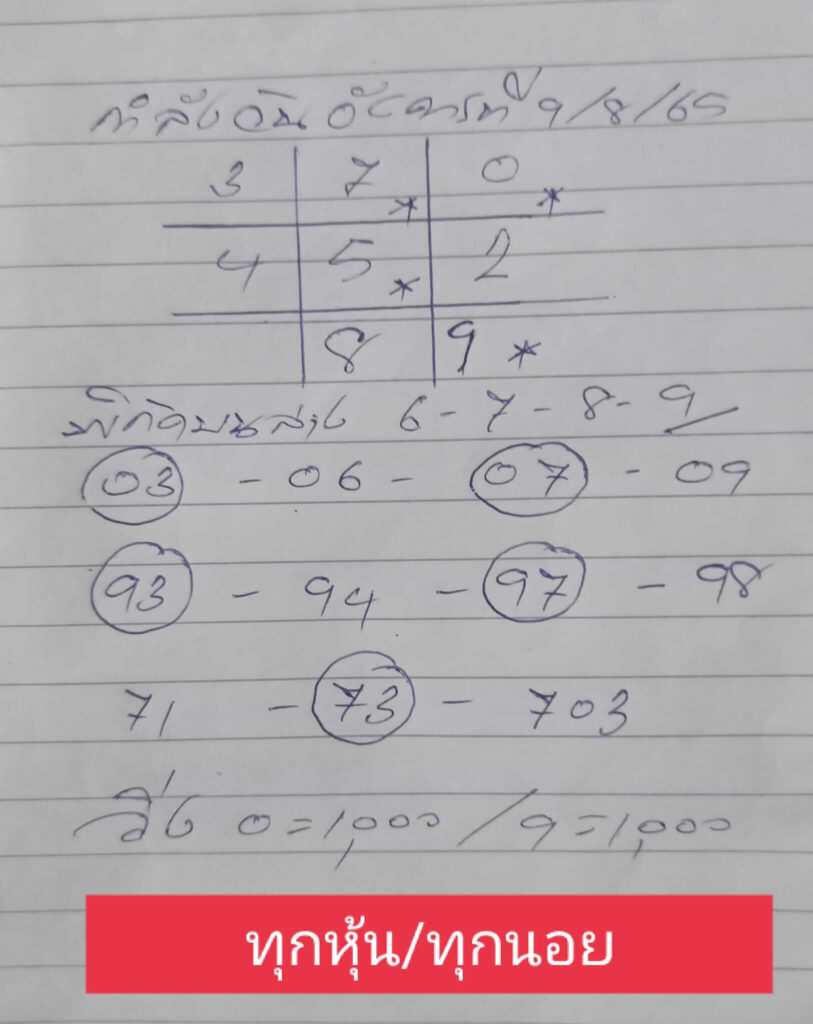 กำลังวันอังคารที่ 9/8/65
3 7 * 0 *
4 5 * 2
8 9 *
พิกัดบนล่าง 6 - 7 - 8 - 9
03 - 06 - 07 - 09
93 - 94 - 97 - 98
71 - 73 - 703
วิ่ง 0 = 1,000 / 9 = 1,000
ทุกหุ้น/ทุกนอย